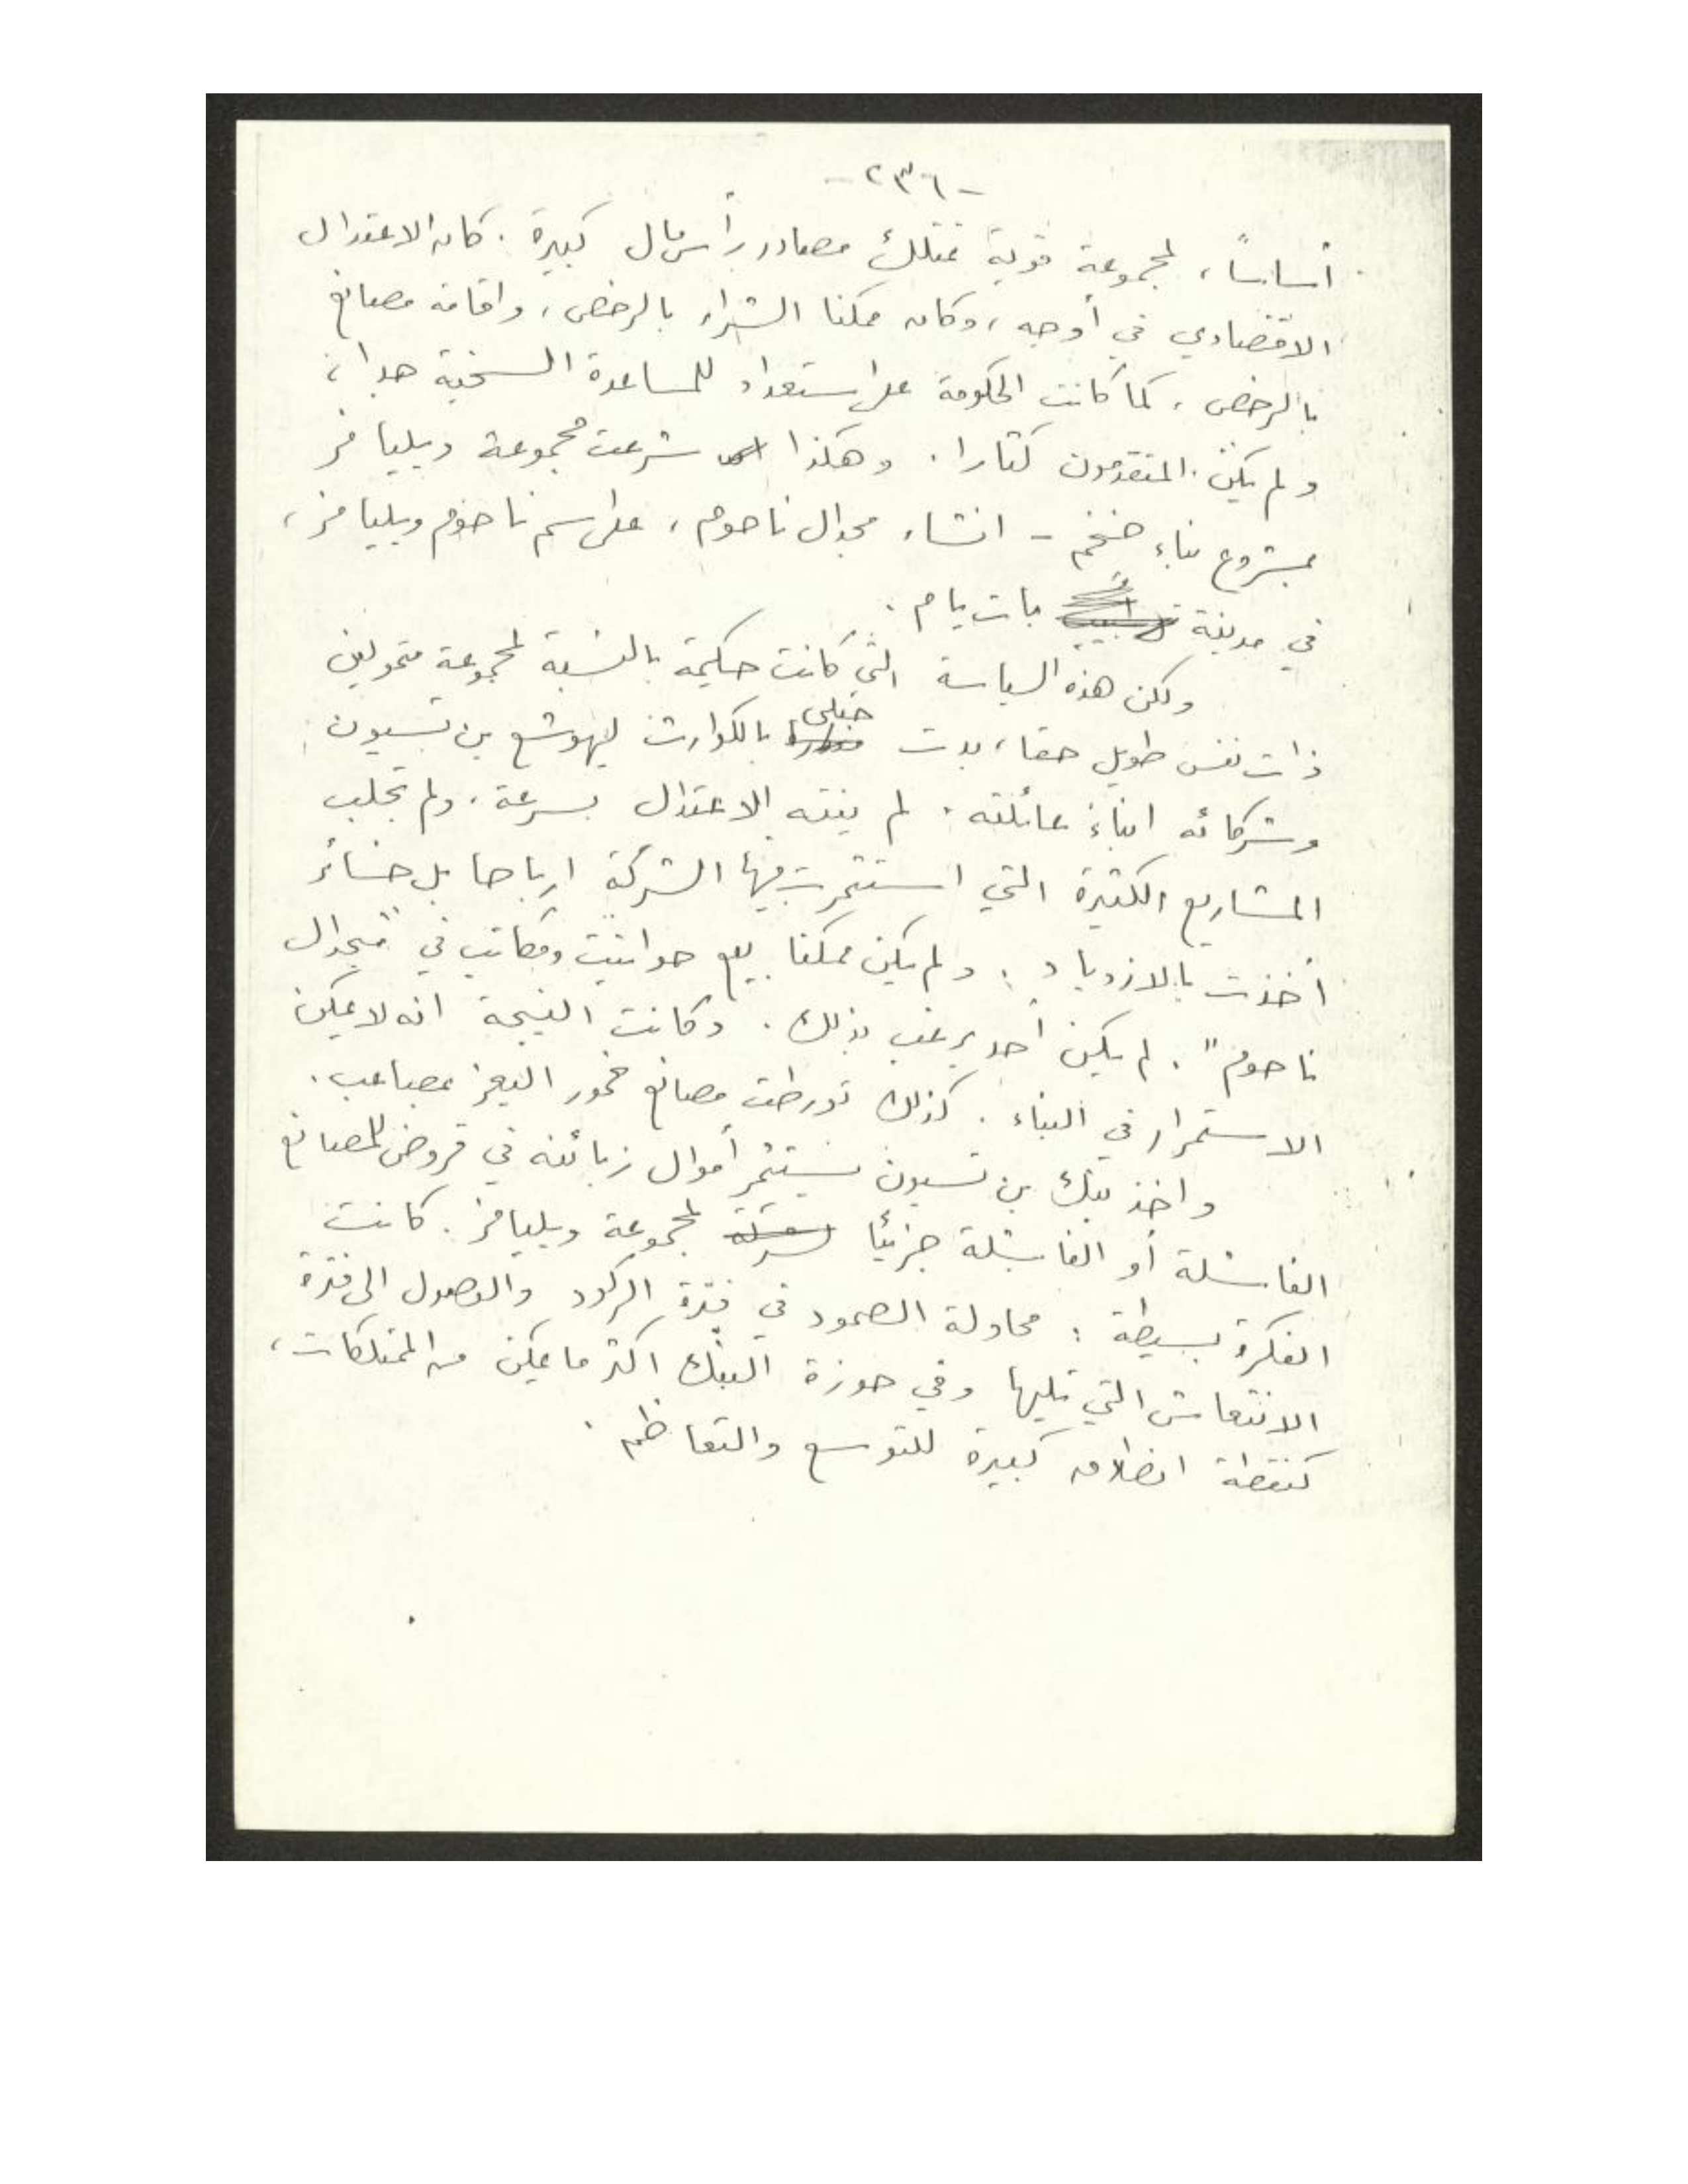 - ٢٣٦ -
أساساً، لمجموعة قوية تمتلك مصادر رأس مال كبيرة. كان الاعتدال
الاقتصادي في أوجه، وكان ممكنا الشراء بالرخص، واقامة مصانع
بالرخص، كما كانت الحكومة على استعداد للمساعدة السخية جدا،
ولم يكن المتقدمون كثارا. وهكذا شرعت مجموعة ويليامز
بمشروع بناء ضخم - انشاء مجدال ناحوم، على اسم ناحوم ويليامز،
في مدينة بات يام.
ولكن هذه السياسة التي كانت حكيمة بالنسبة لمجموعة متمولين
ذات نفس طويل حقا، بدت حبلى بالكوارث ليهوشع بن تسيون
وشركائه ابناء عائلته. لم ينته الاعتدال بسرعة، ولم تجلب
المشاريع الكثيرة التي استثمرت فيها الشركة ارباحا بل خسائر
أخذت بالازدياد. ولم يكن ممكنا بيع حوانيت ومكاتب في "ميجدال
ناحوم". لم يكن أحد يرغب بذلك. وكانت النتيجة انه لا يمكن
الاستمرار في البناء. كذلك تورطت مصانع خمور اليعز بمصاعب.
واخذ بنك بن تسيون يستثمر أموال زبائنه في قروض للمصانع
الفاشلة أو الفاشلة جزئيا لمجموعة ويليامز. كانت
الفكرة بسيطة: محاولة الصمود في فترة الركود والوصول الى فترة
الانتعاش التي تليها وفي حوزة البنك اكثر ما يمكن من الممتلكات،
كنقطة انطلاق كبيرة للتوسع والتعاظم.